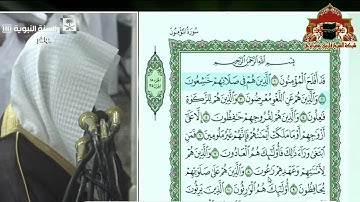 السنة النبوية HD
مباشر
سُورَةُ المُؤْمِنُونَ
بِسْمِ اللَّهِ الرَّحْمَٰنِ الرَّحِيمِ
قَدْ أَفْلَحَ الْمُؤْمِنُونَ ١ الَّذِينَ هُمْ فِي صَلَاتِهِمْ خَاشِعُونَ
٢ وَالَّذِينَ هُمْ عَنِ اللَّغْوِ مُعْرِضُونَ ٣ وَالَّذِينَ هُمْ لِلزَّكَوٰةِ
فَاعِلُونَ ٤ وَالَّذِينَ هُمْ لِفُرُوجِهِمْ حَافِظُونَ ٥ إِلَّا عَلَىٰ
أَزْوَاجِهِمْ أَوْ مَا مَلَكَتْ أَيْمَانُهُمْ فَإِنَّهُمْ غَيْرُ مَلُومِينَ ٦ فَمَنِ
ابْتَغَىٰ وَرَاءَ ذَٰلِكَ فَأُولَٰئِكَ هُمُ الْعَادُونَ ٧ وَالَّذِينَ هُمْ
لِأَمَانَاتِهِمْ وَعَهْدِهِمْ رَاعُونَ ٨ وَالَّذِينَ هُمْ عَلَىٰ صَلَوَاتِهِمْ
يُحَافِظُونَ ٩ أُولَٰئِكَ هُمُ الْوَارِثُونَ ١٠ الَّذِينَ يَرِثُونَ